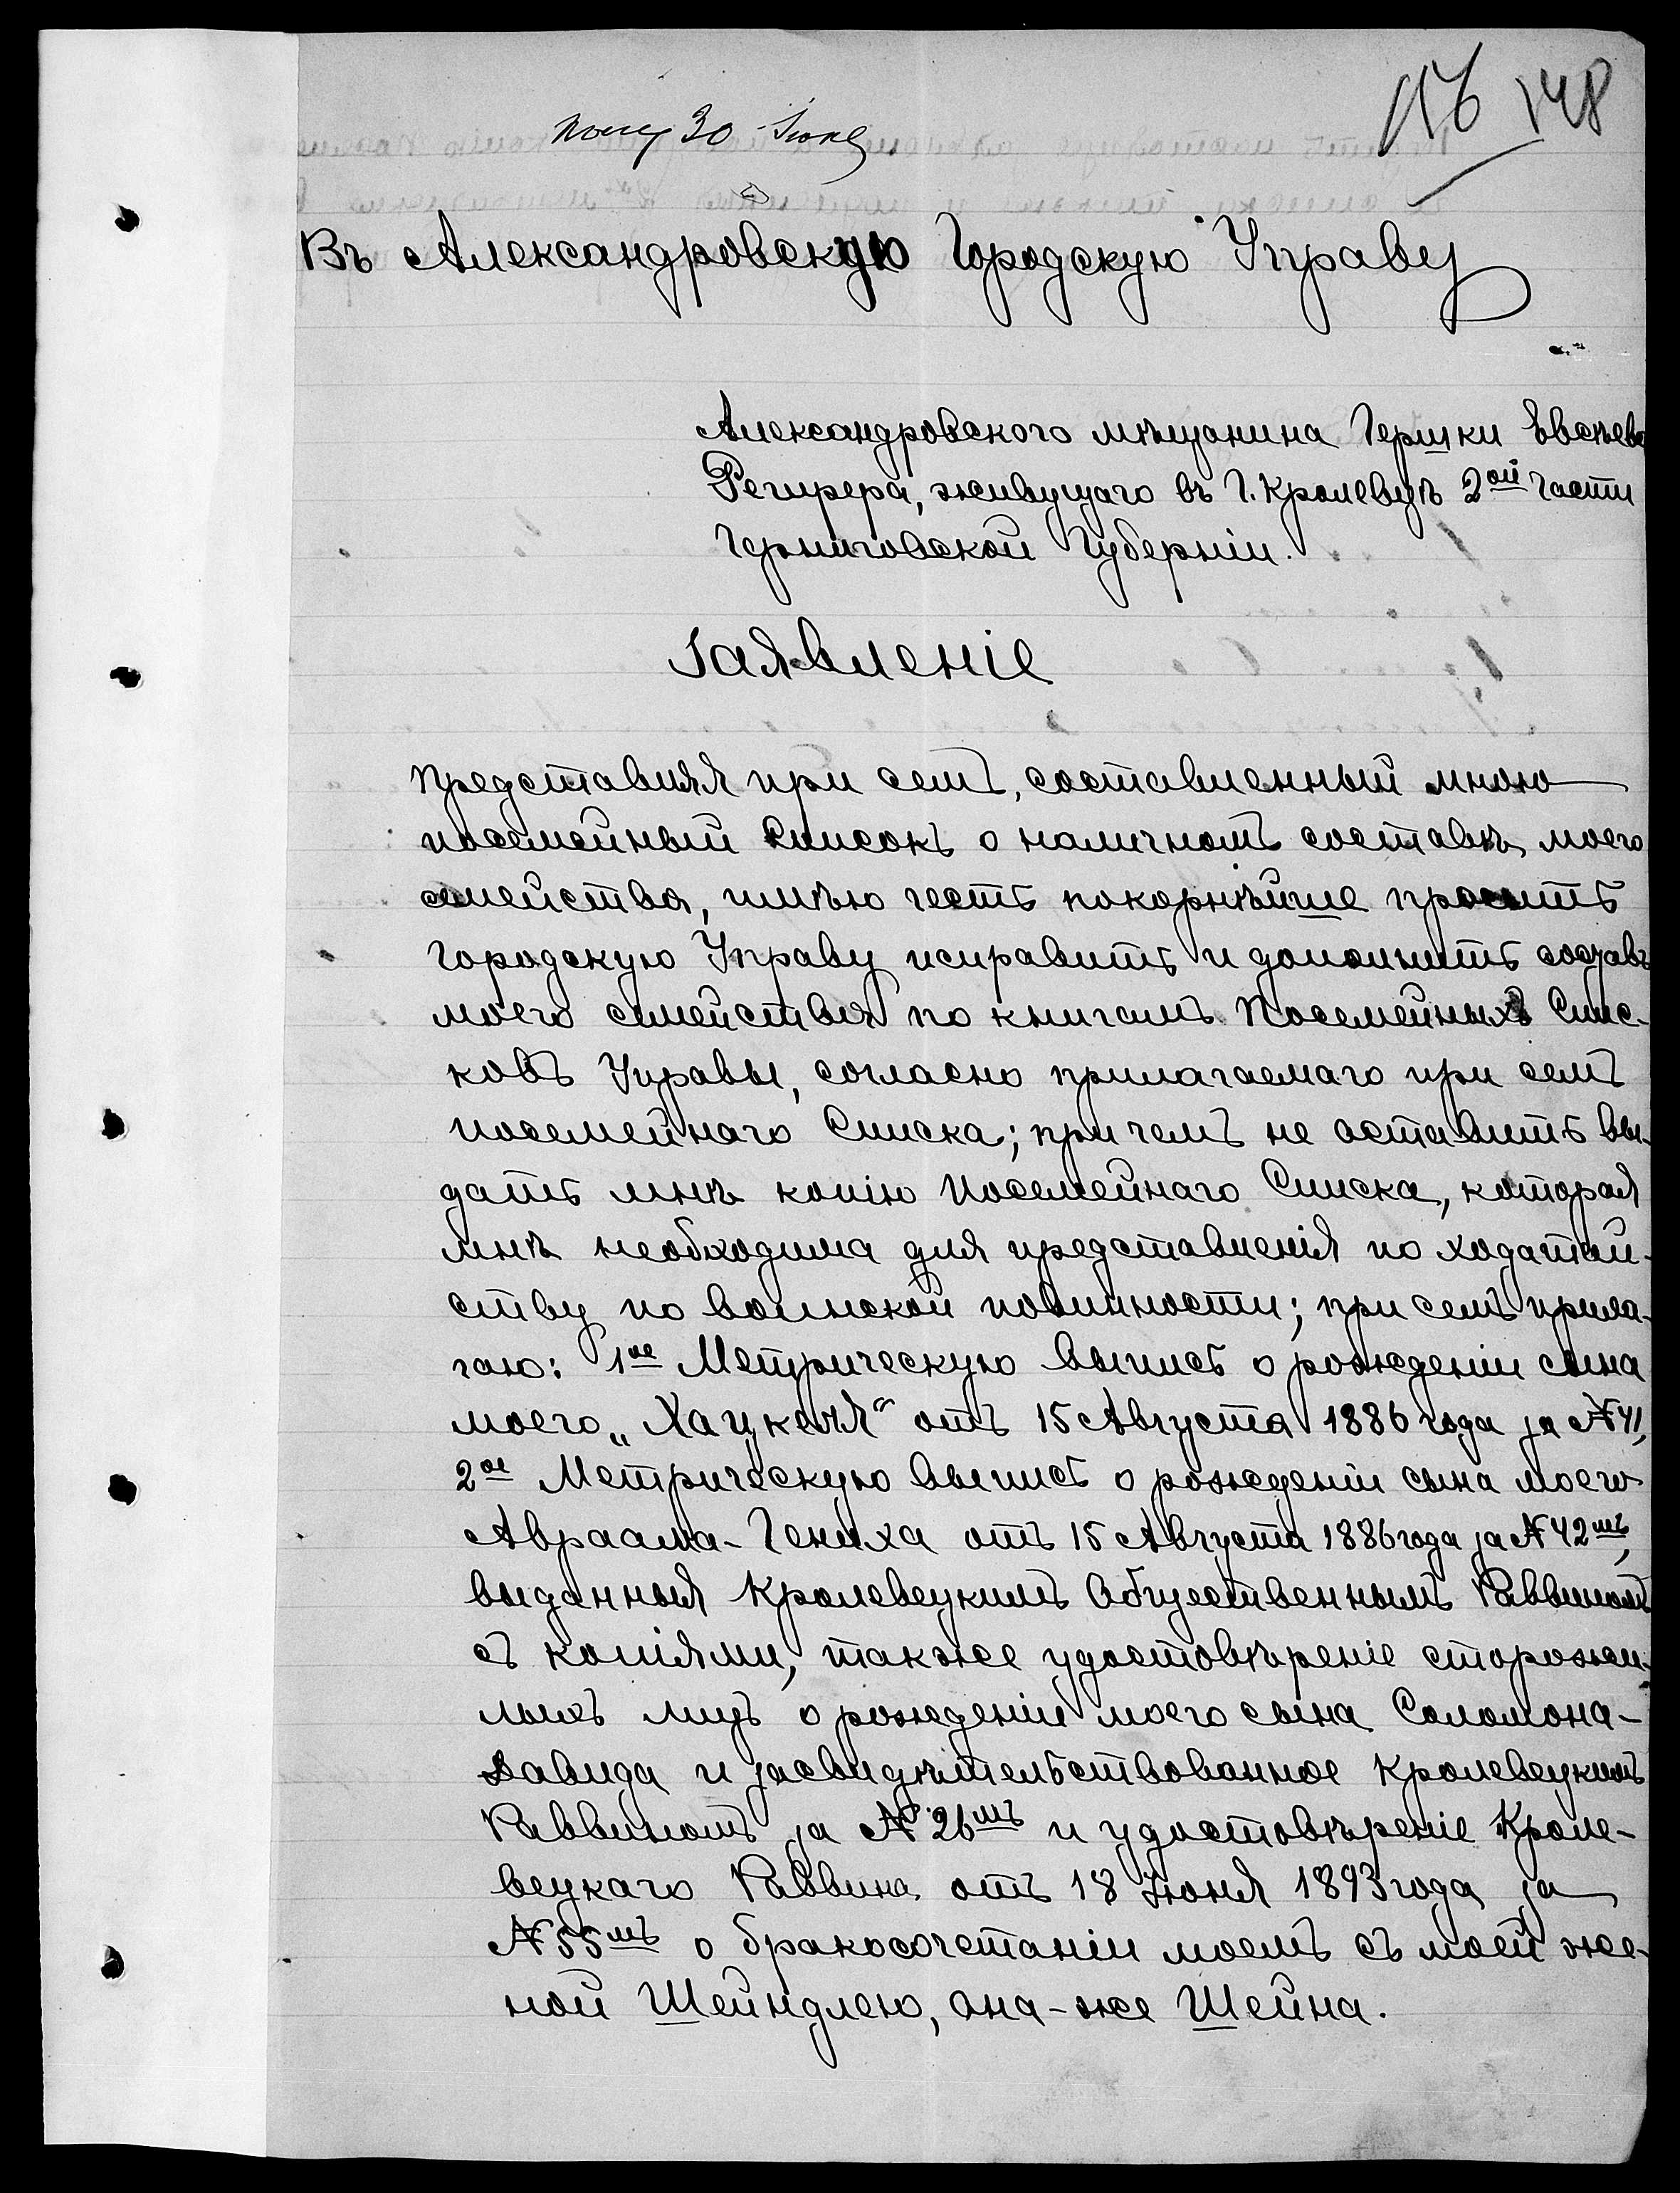 156 148
Получ 30 Іюня
Въ Александровскую Городскую Управу
Александровского мѣщанина Гершки Евсѣева
Регирера, живущаго въ г. Кролевцѣ 2ой части
Черниговской Губерніи.
Заявленіе
Представляя при семъ, составленный мною
посемейный Списокъ о наличномъ составѣ моего
семейства, имѣю честь покорнѣйше просить
Городскую Управу исправить и дополнить составъ
моего семейства по книгамъ Посемейныхъ Спис-
ковъ Управы, согласно прилагаемаго при семъ
посемейнаго Списка; при чемъ не оставить вы-
дать мнѣ копію Посемейнаго Списка, которая
мнѣ необходима для представленія по ходатай-
ству по воинской повинности; при семъ прила-
гаю: 1ое Метрическую выпись о рожденіи сына
моего „Хацкеля“ отъ 15 Августа 1886 года за № 41,
2ое Метрическую выпись о рожденіи сына моего
Авраама-Гениха отъ 15 Августа 1886 года за № 42мъ,
выданныя Кролевецкимъ Общественнымъ Раввиномъ
съ копіями, также удостовѣреніе сторожи-
лыхъ лицъ о рожденіи моего сына Соломона-
Давида и засвидѣтельствованное Кролевецкимъ
Раввиномъ за № 26мъ и удостовѣреніе Кроле-
вецкаго Раввина отъ 18 Іюня 1893 года за
№ 55мъ о бракосочетаніи моемъ съ моей же-
ной Шейндлею, она-же Шейна.